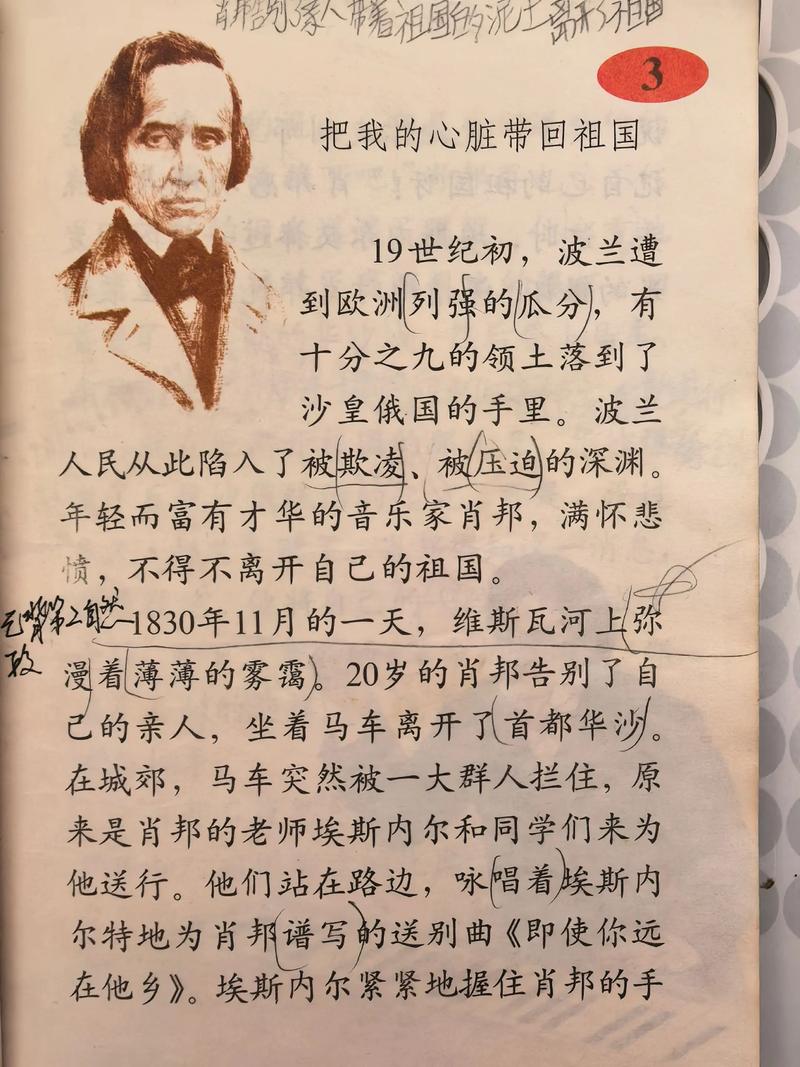 肖邦告别家人带着祖国的泥土离开了祖国
3
把我的心脏带回祖国
19世纪初，波兰遭
到欧洲列强的瓜分，有
十分之九的领土落到了
沙皇俄国的手里。波兰
人民从此陷入了被欺凌、被压迫的深渊。
年轻而富有才华的音乐家肖邦，满怀悲
愤，不得不离开自己的祖国。
1830年11月的一天，维斯瓦河上弥
漫着薄薄的雾霭。20岁的肖邦告别了自
己的亲人，坐着马车离开了首都华沙。
在城郊，马车突然被一大群人拦住，原
来是肖邦的老师埃斯内尔和同学们来为
他送行。他们站在路边，咏唱着埃斯内
尔特地为肖邦谱写的送别曲《即使你远
在他乡》。埃斯内尔紧紧地握住肖邦的手